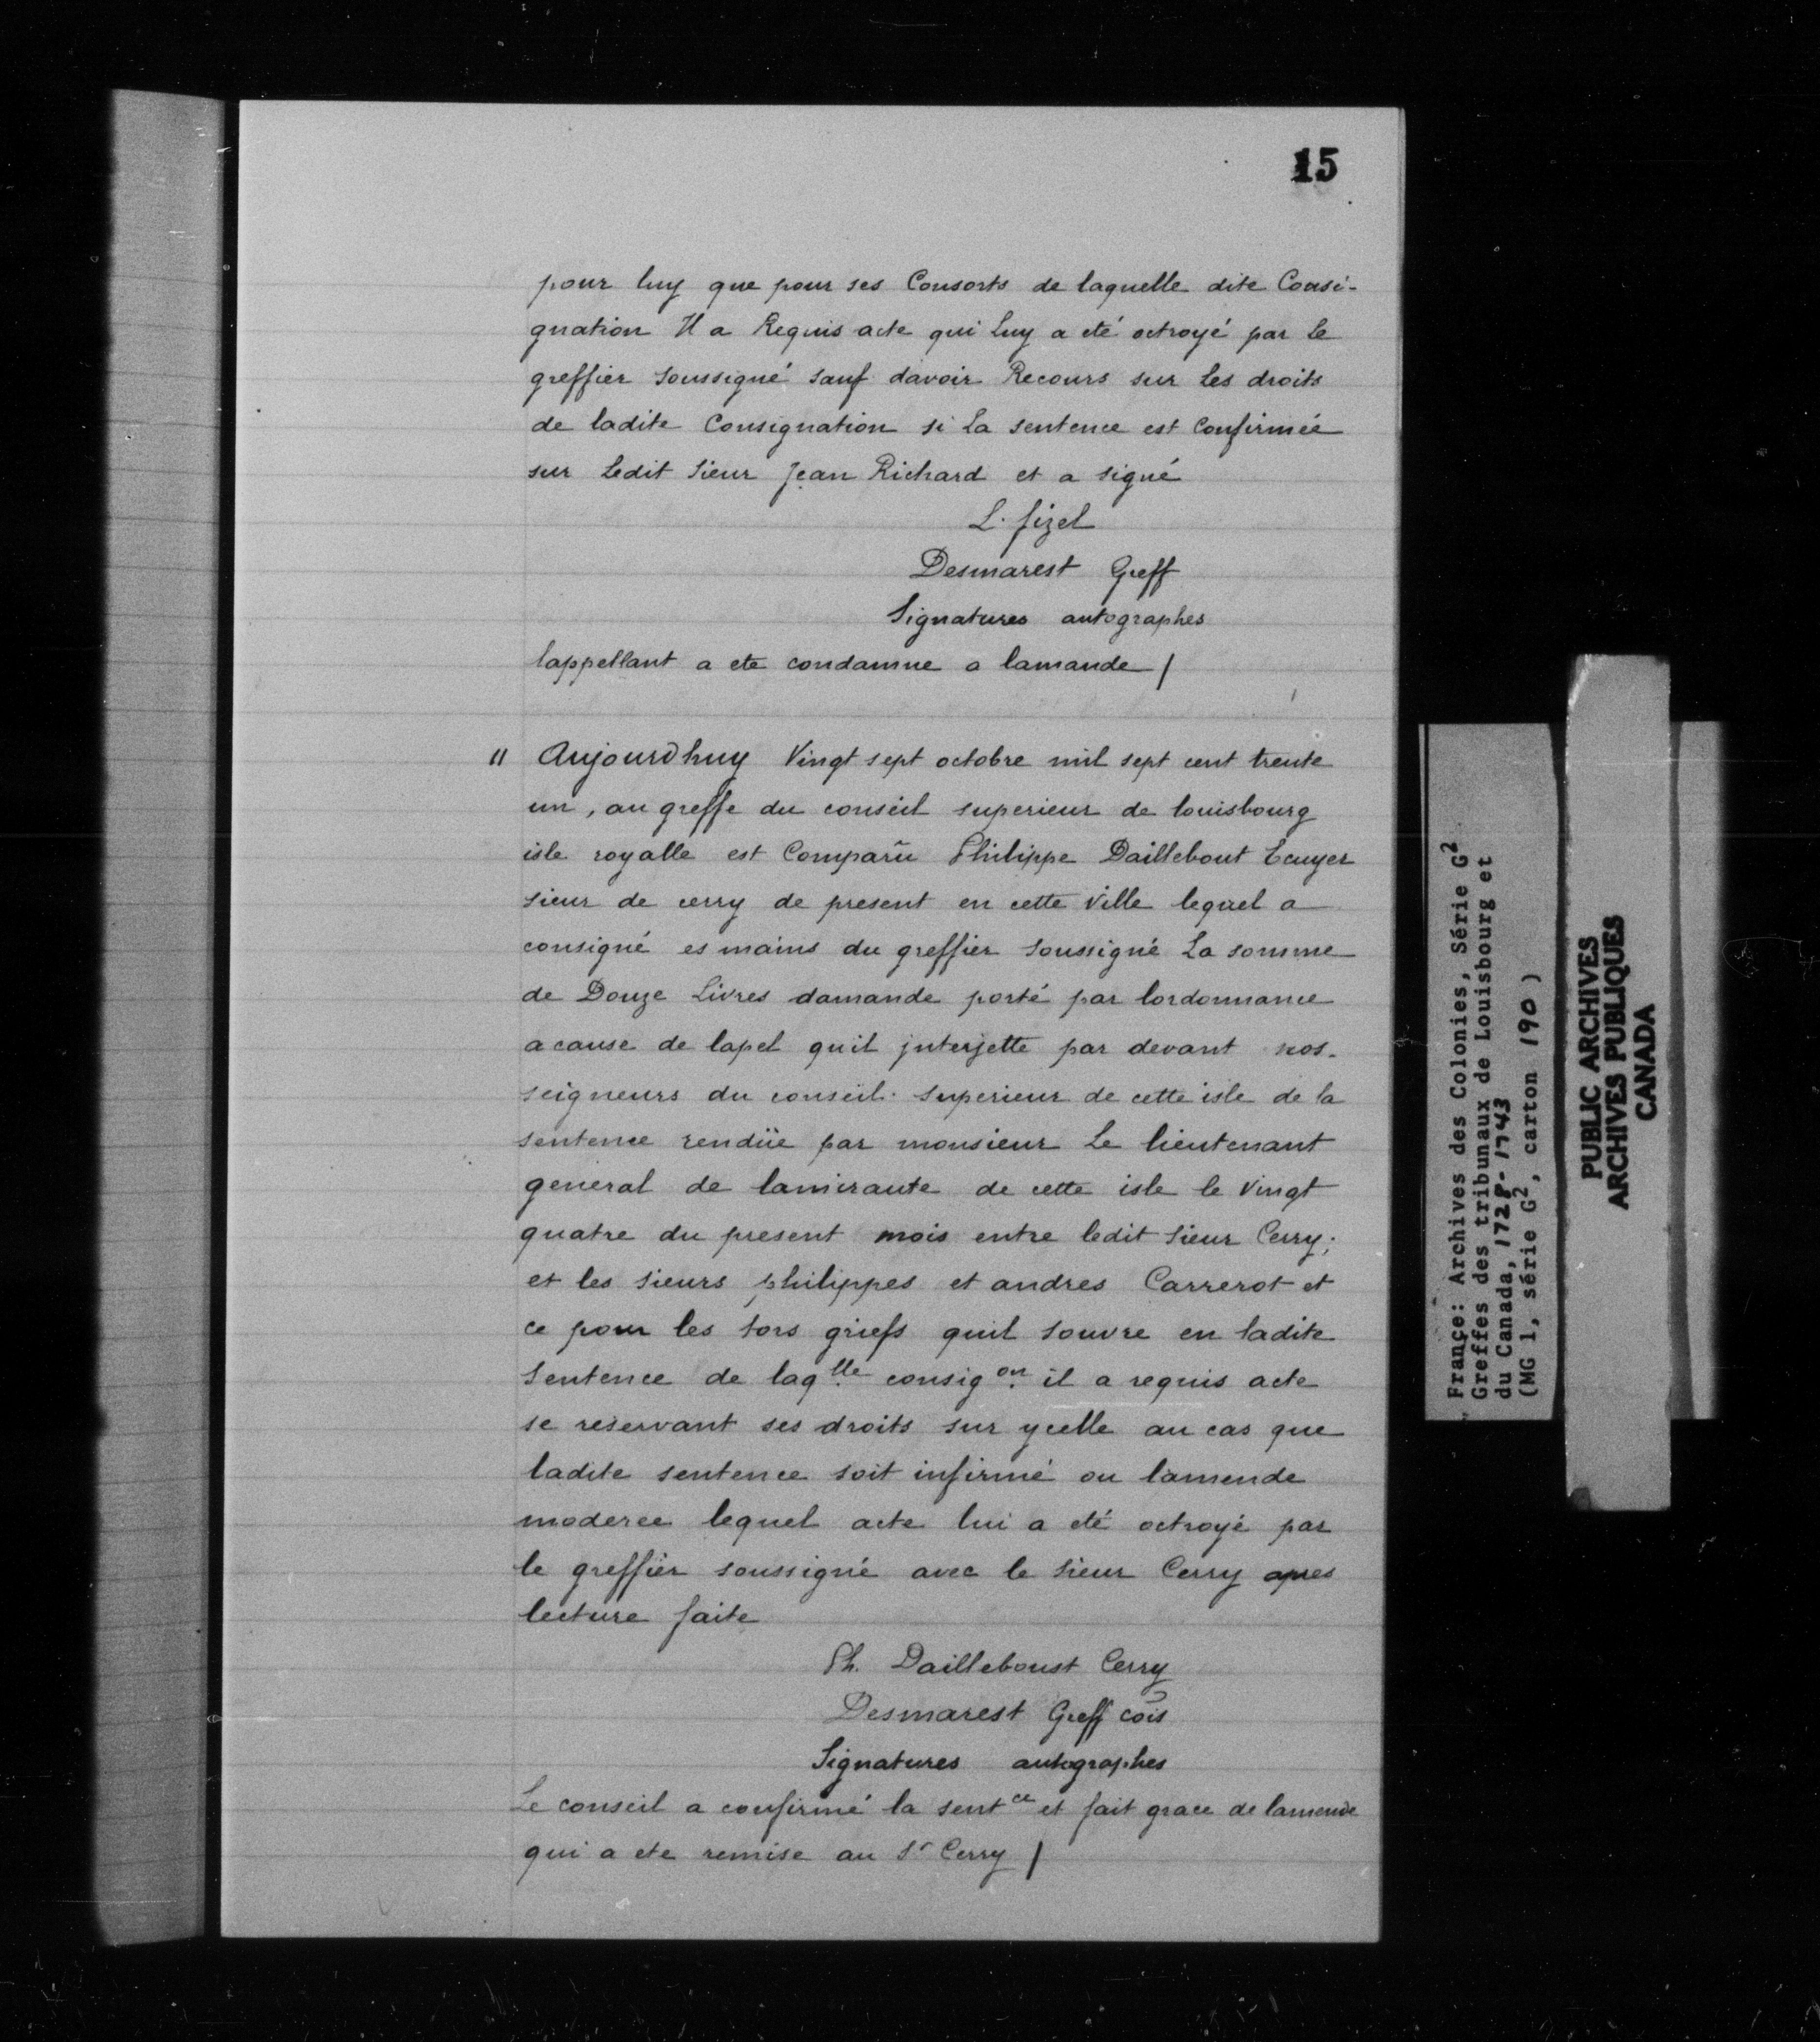 15
pour luy que pour ses Consorts de laquelle dite Consi-
gnation Il a Requis acte qui Luy a eté octroyé par Le
greffier soussigné sauf davoir Recours sur Les droits
de ladite Consignation si La sentence est Confirmée
sur Ledit sieur Jean Richard et a signé
L. fizel
Desmarest Greff
Signatures autographes
lappellant a ete condamne a lamande /
" Aujourdhuy Vingt sept octobre mil sept cent trente
un, au greffe du conseil superieur de louisbourg
isle royalle est Comparu Philippe Daillebout Ecuyer
sieur de cerry de present en cette Ville lequel a
consigné es mains du greffier soussigné La somme
de Douze Livres damande porté par lordonnance
a cause de lapel quil jnterjette par devant nos-
seigneurs du conseil superieur de cette isle de la
sentence rendüe par monsieur Le lieutenant
general de lamiraute de cette isle le Vingt
quatre du present mois entre ledit sieur Cerry;
et les sieurs philippes et andres Carrerot et
ce pour les tors griefs quil souvre en ladite
sentence de laqlle consigon il a requis acte
se reservant ses droits sur ycelle au cas que
ladite sentence soit infirmé ou lamende
moderee lequel acte lui a eté octroyé par
le greffier soussigné avec le sieur Cerry apres
lecture faite
Ph. Dailleboust Cerry
Desmarest Greff cois
Signatures autographes
Le conseil a confirmé la sentce et fait grace de lamende
qui a ete remise au Sr Cerry /
France: Archives des Colonies, Série G2
Greffes des tribunaux de Louisbourg et
du Canada, 1728-1743
(MG 1, série G2, carton 190)
PUBLIC ARCHIVES
ARCHIVES PUBLIQUES
CANADA